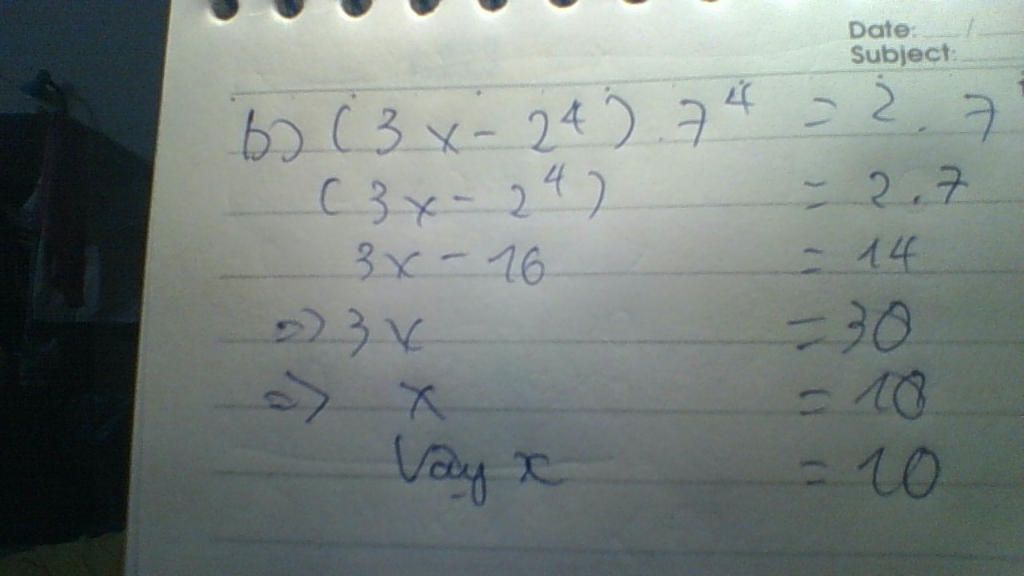 Date: /
Subject:
b) (3x - 2⁴) . 7⁴ = 2 . 7
(3x - 2⁴) = 2.7
3x - 16 = 14
=> 3x = 30
=> x = 10
Vậy x = 10